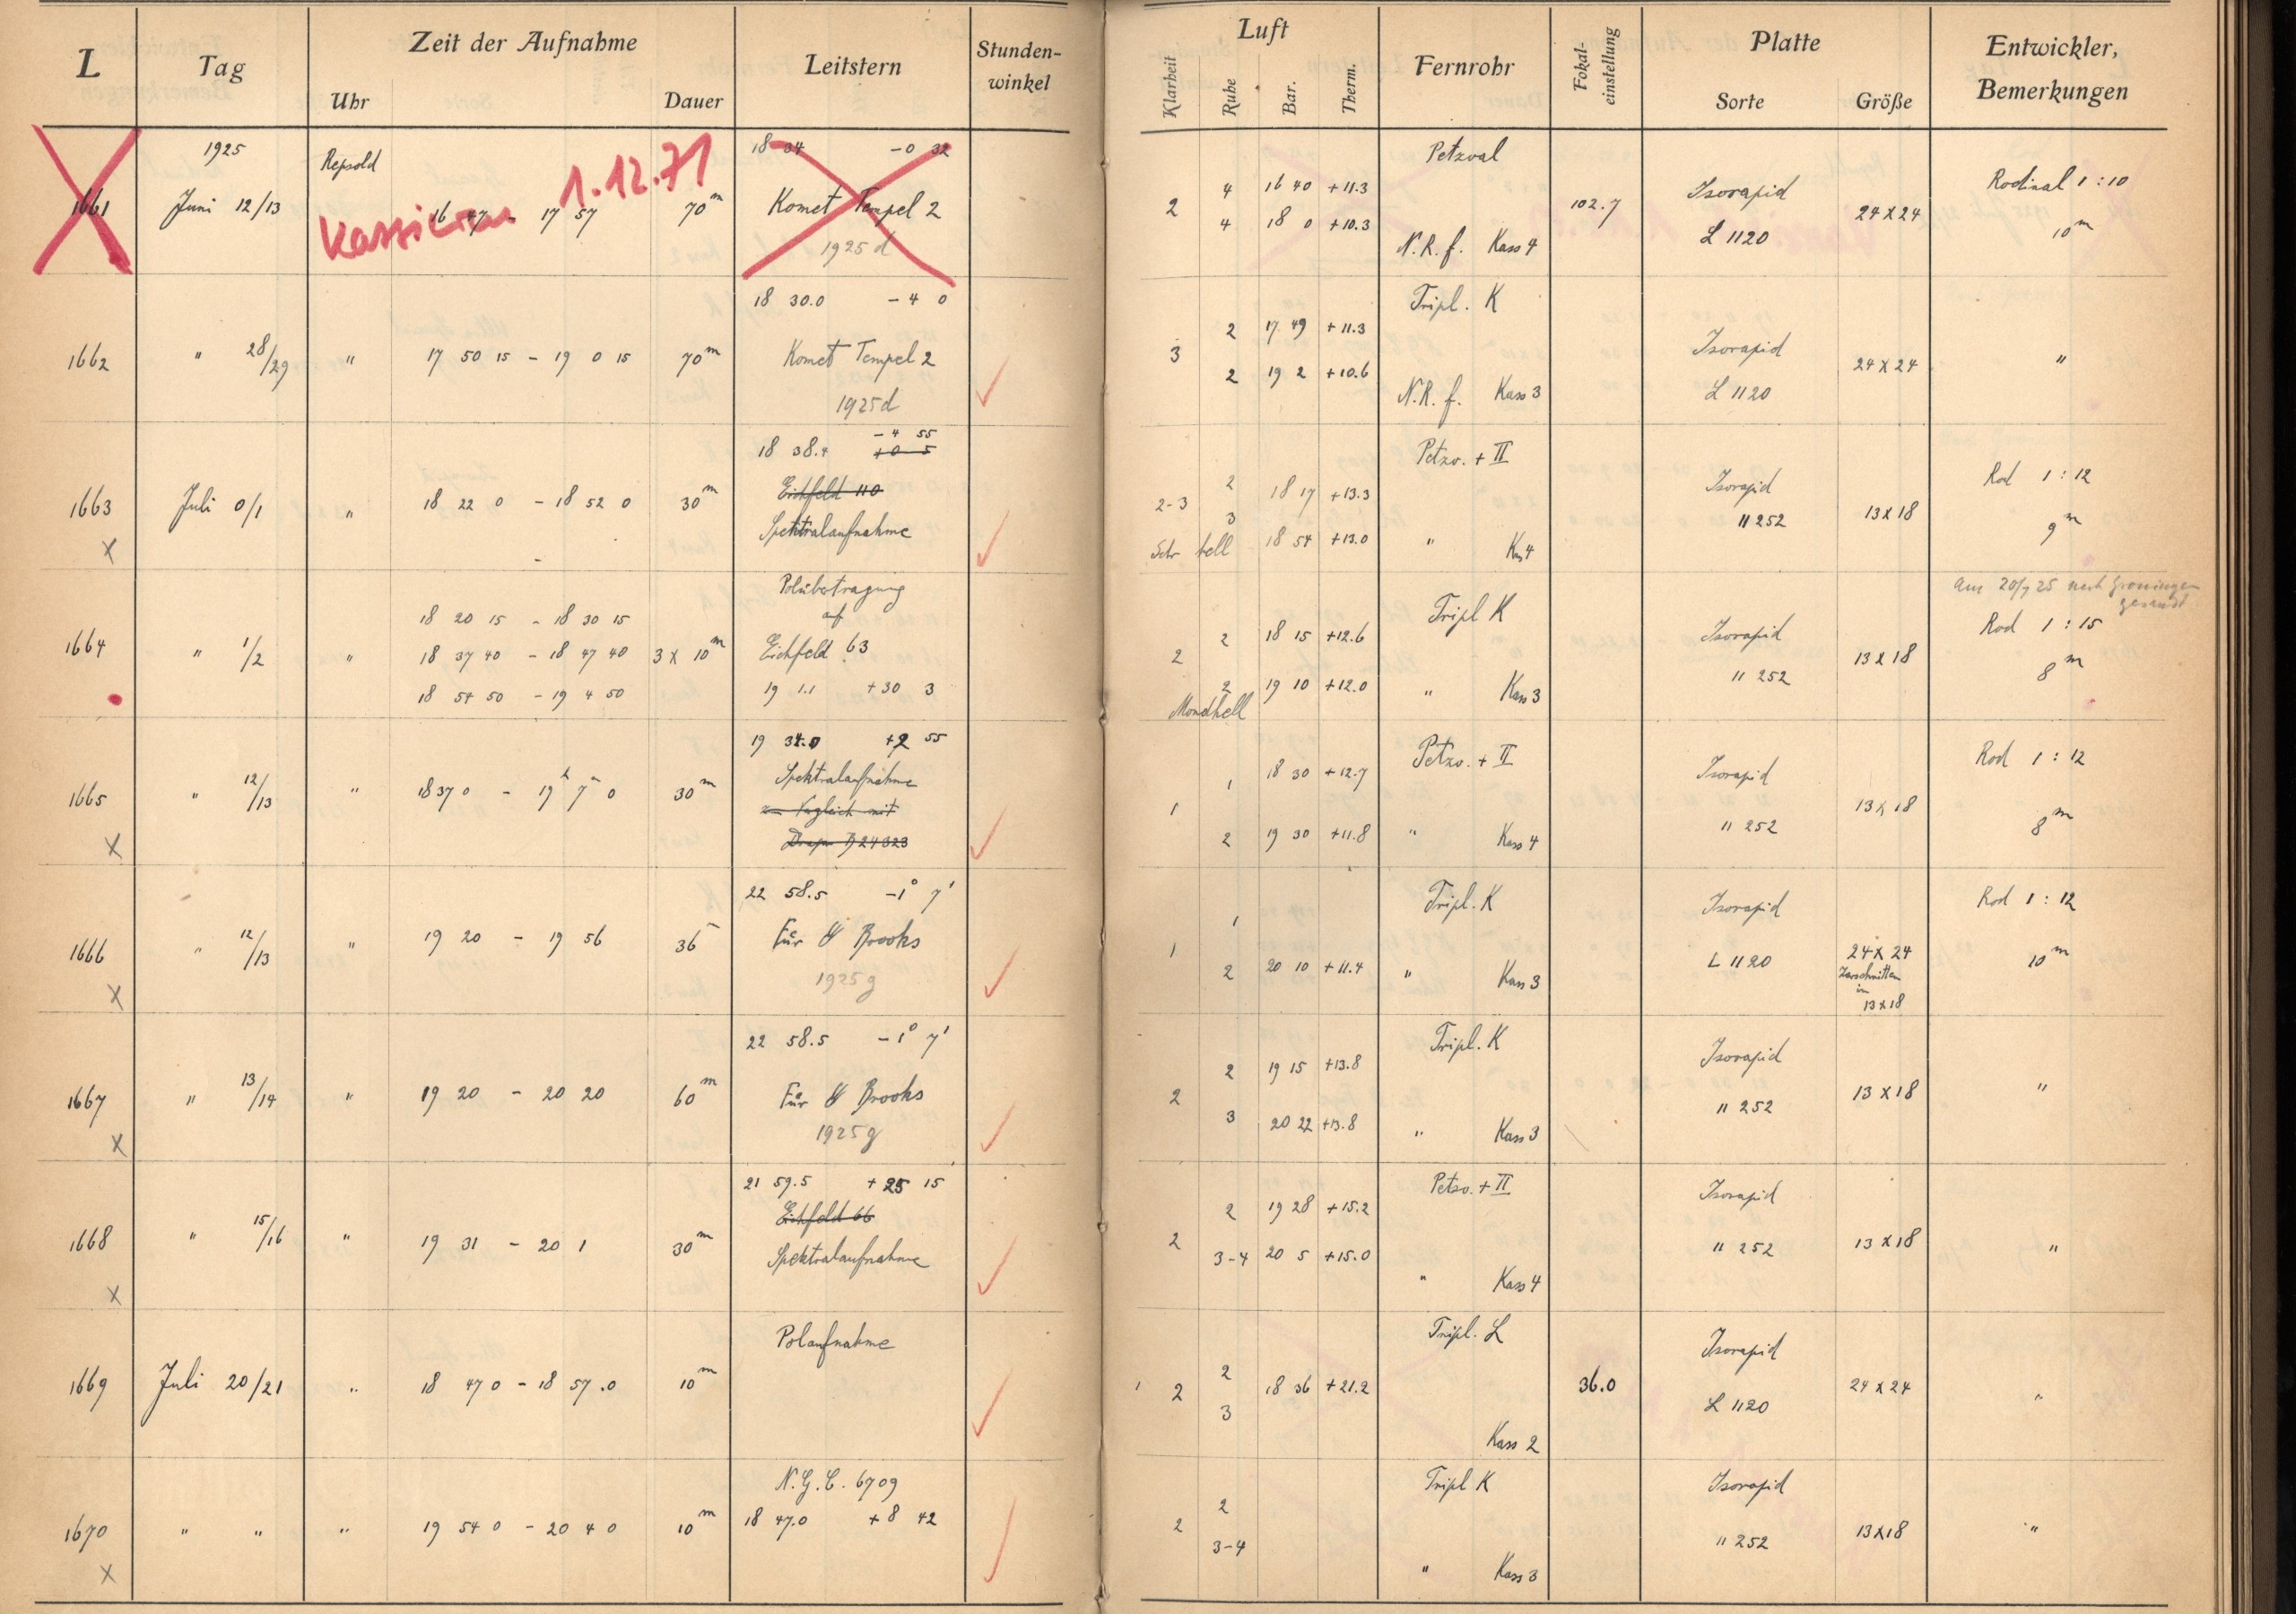 L Tag Zeit der Aufnahme Leitstern Stunden-winkel Luft Fernrohr Fokal-einstellung Platte Entwickler, Bemerkungen
Uhr Dauer Klarheit Ruhe Bar. Therm. Sorte Größe
1925 Repsold 1.12.71 18 34 -0 32 Petzval
1661 Juni 12/13 16 47 - 17 57 70m Komet Tempel 2 2 4 16 40 +11.3 102.7 Isorapid 24 X 24 Rodinal 1:10
1925 d 4 18 0 +10.3 N.R.f. Kass 4 L 1120 10m
18 30.0 - 4 0 Tripl. K
1662 " 28/29 " 17 50 15 - 19 0 15 70m Komet Tempel 2 3 2 17 49 +11.3 Isorapid 24 X 24 "
1925d 2 19 2 +10.6 N.R.f. Kass 3 L 1120
- 4 55
18 38.4 +0 5 Petzv. + II
1663 Juli 0/1 " 18 22 0 - 18 52 0 30m Eichfeld 110 2-3 2 18 17 +13.3 Isorapid 13 X 18 Rod 1:12
X Spektralaufnahme 3 18 54 +13.0 " Kas 4 " 252 9m
Sehr hell
Polübertragung Am 20/7 25 nach Groningen gesandt
18 20 15 - 18 30 15 auf Tripl K
1664 " 1/2 " 18 37 40 - 18 47 40 3 X 10m Eichfeld 63 2 2 18 15 +12.6 Isorapid 13 X 18 Rod 1:15
18 54 50 - 19 4 50 19 1.1 +30 3 2 19 10 +12.0 " Kass 3 " 252 8m
Mondhell
19 34.0 +2 55 Petzv. + II
1665 " 12/13 " 18 37 0 - 19h 7m 0 30m Spektralaufnahme 1 1 18 30 +12.7 Isorapid 13 X 18 Rod 1:12
zum Vergleich mit
X 24323 2 19 30 +11.8 " Kass 4 " 252 8m
22 58.5 -1° 7' Tripl. K
1666 " 12/13 " 19 20 - 19 56 36m Für Brooks 1 1 Isorapid Rod 1:12
X 1925g 2 20 10 +11.4 " Kass 3 L 1120 24 X 24 10m
Zerschnitten
in
13 X 18
22 58.5 -1° 7' Tripl. K
1667 " 13/14 " 19 20 - 20 20 60m Für Brooks 2 2 19 15 +13.8 Isorapid 13 X 18 "
X 1925g 3 20 22 +13.8 " Kass 3 " 252
21 59.5 + 25 15 Petzv. + II
1668 " 15/16 " 19 31 - 20 1 30m Eichfeld 66 2 2 19 28 +15.2 Isorapid 13 X 18 "
X Spektralaufnahme 3-4 20 5 +15.0 " Kass 4 " 252
Polaufnahme Tripl. L
1669 Juli 20/21 " 18 47 0 - 18 57.0 10m 2 2 18 36 +21.2 36.0 Isorapid 24 X 24 "
3 Kass 2 L 1120
N.G.C. 6709 Tripl K
1670 " " " 19 54 0 - 20 4 0 10m 18 47.0 + 8 42 2 2 Isorapid 13X18 "
X 3-4 " Kass 3 " 252